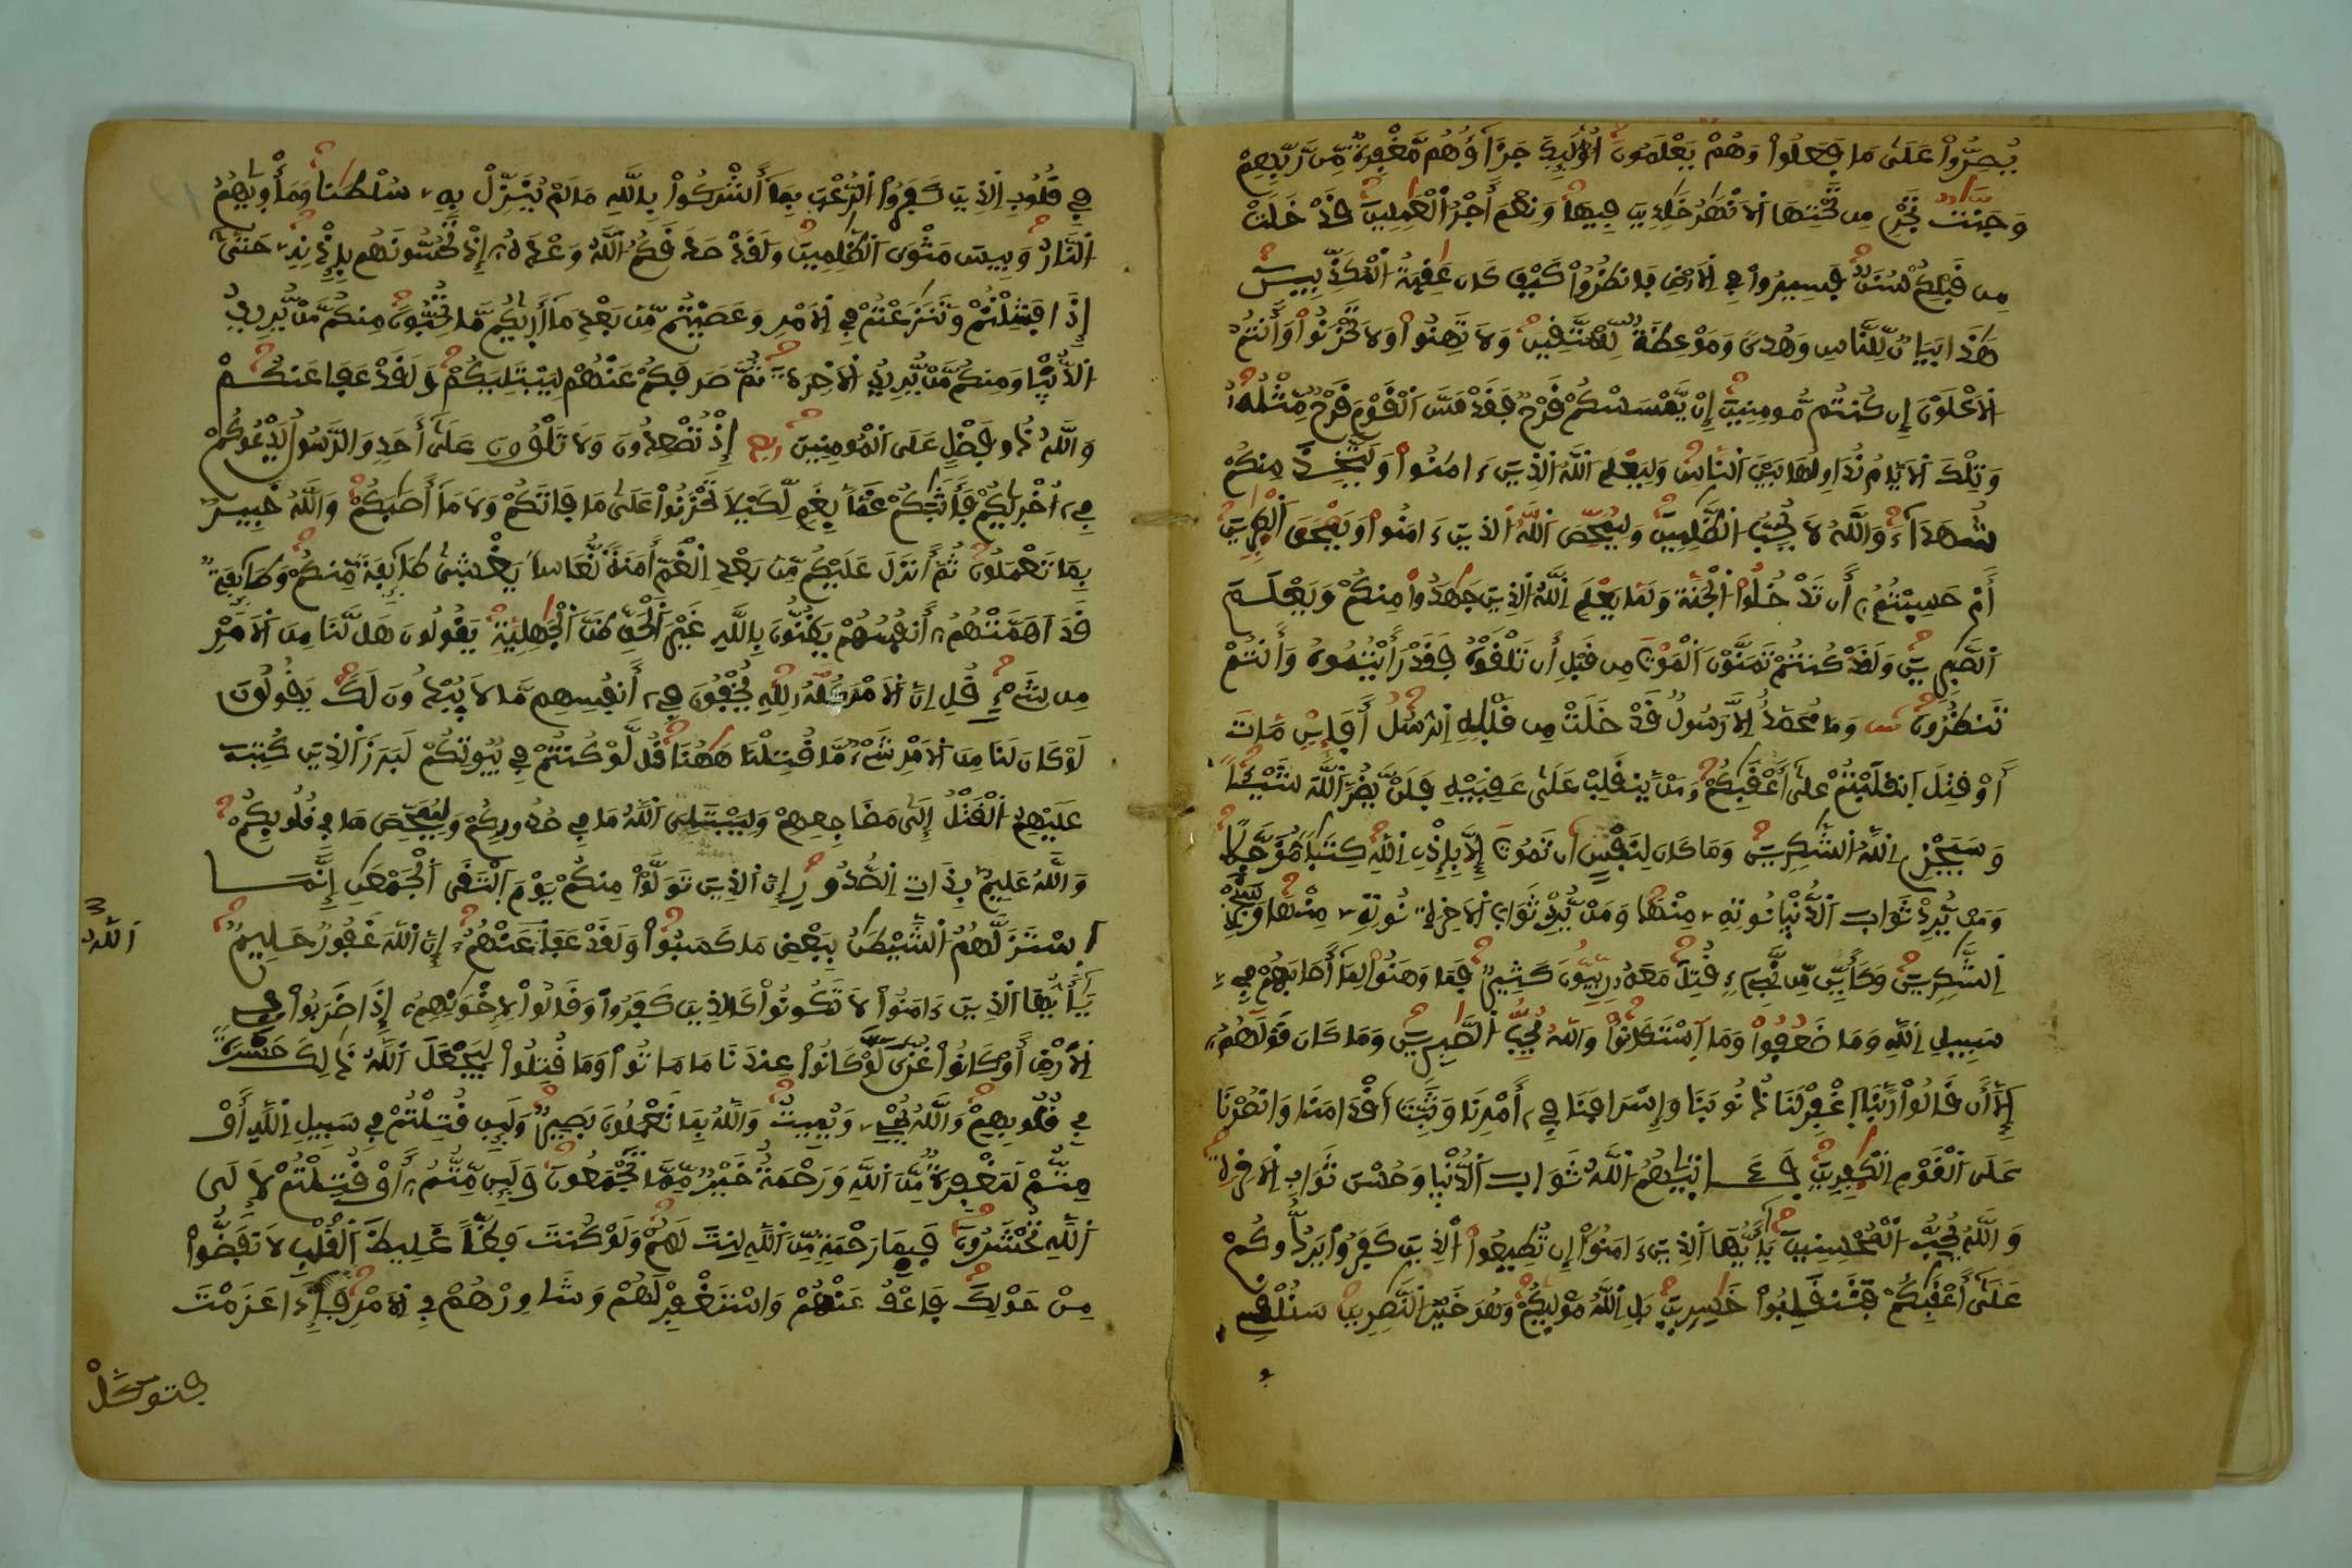 يُصِرُّواْ عَلَىٰ مَا فَعَلُواْ وَهُمْ يَعْلَمُونَ أُوْلَٰٓئِكَ جَزَآؤُهُم مَّغْفِرَةٌ مِّن رَّبِّهِمْ
وَجَنَّٰتٌ تَجْرِے مِن تَحْتِهَا اَ۬لَانْهَٰرُ خَٰلِدِينَ فِيهَا وَنِعْمَ أَجْرُ اُ۬لْعَٰمِلِينَ قَدْ خَلَتْ
مِن قَبْلِكُمْ سُنَنٌ فَسِيرُواْ فِے اِ۬لَارْضِ فَانظُرُواْ كَيْفَ كَانَ عَٰقِبَةُ اُ۬لْمُكَذِّبِينَ
هَٰذَا بَيَانٌ لِّلنَّاسِ وَهُدىً وَمَوْعِظَةٌ لِّلْمُتَّقِينَ وَلَا تَهِنُواْ وَلَا تَحْزَنُواْ وَأَنتُمُ
اُ۬لَاعْلَوْنَ إِن كُنتُم مُّومِنِينَ إِنْ يَّمْسَسْكُمْ قَرْحٌ فَقَدْ مَسَّ اَ۬لْقَوْمَ قَرْحٌ مِّثْلُهُۥ
وَتِلْكَ اَ۬لَايَّامُ نُدَاوِلُهَا بَيْنَ اَ۬لنَّاسِ وَلِيَعْلَمَ اَ۬للَّهُ اُ۬لذِينَ ءَامَنُواْ وَيَتَّخِذَ مِنكُمْ
شُهَدَآءَ وَاللَّهُ لَا يُحِبُّ اُ۬لظَّٰلِمِينَ وَلِيُمَحِّصَ اَ۬للَّهُ اُ۬لذِينَ ءَامَنُواْ وَيَمْحَقَ اَ۬لْكٰ۪فِرِينَ
أَمْ حَسِبْتُمُۥٓ أَن تَدْخُلُواْ اُ۬لْجَنَّةَ وَلَمَّا يَعْلَمِ اِ۬للَّهُ اُ۬لذِينَ جَٰهَدُواْ مِنكُمْ وَيَعْلَمَ
اَ۬لصَّٰبِرِينَ وَلَقَدْ كُنتُمْ تَمَنَّوْنَ اَ۬لْمَوْتَ مِن قَبْلِ أَن تَلْقَوْهُ فَقَدْ رَأَيْتُمُوهُ وَأَنتُمْ
تَنظُرُونَ وَمَا مُحَمَّدٌ اِلَّا رَسُولٌ قَدْ خَلَتْ مِن قَبْلِهِ اِ۬لرُّسُلُ أَفَإِيْن مَّاتَ
أَوْ قُتِلَ اَ۪نقَلَبْتُمْ عَلَىٰٓ أَعْقَٰبِكُمْ وَمَنْ يَّنقَلِبْ عَلَىٰ عَقِبَيْهِ فَلَنْ يَّضُرَّ اَ۬للَّهَ شَيْـٔاً
وَسَيَجْزِے اِ۬للَّهُ اُ۬لشَّٰكِرِينَ وَمَا كَانَ لِنَفْسٍ أَن تَمُوتَ إِلَّا بِإِذْنِ اِ۬للَّهِ كِتَٰباً مُّؤَجَّلاً
وَمَن يُّرِدْ ثَوَابَ اَ۬لدُّنْيَا نُوتِهِۦ مِنْهَا وَمَنْ يُّرِدْ ثَوَابَ اَ۬لَاخِرَةِ نُوتِهِۦ مِنْهَا وَسَنَجْزِے
اِ۬لشَّٰكِرِينَ وَكَأَيِّن مِّن نَّبِےٓءٍ قُتِلَ مَعَهُۥ رِبِّيُّونَ كَثِيرٌ فَمَا وَهَنُواْ لِمَآ أَصَابَهُمْ فِے
سَبِيلِ اِ۬للَّهِ وَمَا ضَعُفُواْ وَمَا اَ۪سْتَكَانُواْ وَاللَّهُ يُحِبُّ اُ۬لصَّٰبِرِينَ وَمَا كَانَ قَوْلَهُمُۥٓ
إِلَّآ أَن قَالُواْ رَبَّنَا اَ۪غْفِرْ لَنَا ذُنُوبَنَا وَإِسْرَافَنَا فِےٓ أَمْرِنَا وَثَبِّتَ اَقْدَامَنَا وَانصُرْنَا
عَلَى اَ۬لْقَوْمِ اِ۬لْكٰ۪فِرِينَ فَـَٔاتَيٰهُمُ اُ۬للَّهُ ثَوَابَ اَ۬لدُّنْيَا وَحُسْنَ ثَوَابِ اِ۬لَاخِرَةِ
وَاللَّهُ يُحِبُّ اُ۬لْمُحْسِنِينَ يَٰٓأَيُّهَا اَ۬لذِينَ ءَامَنُوٓاْ إِن تُطِيعُواْ اُ۬لذِينَ كَفَرُواْ يَرُدُّوكُمْ
عَلَىٰٓ أَعْقَٰبِكُمْ فَتَنقَلِبُواْ خَٰسِرِينَ بَلِ اِ۬للَّهُ مَوْلَيٰكُمْ وَهُوَ خَيْرُ اُ۬لنَّٰصِرِينَ سَنُلْقِے
فِے قُلُوبِ اِ۬لذِينَ كَفَرُواْ اُ۬لرُّعْبَ بِمَآ أَشْرَكُواْ بِاللَّهِ مَا لَمْ يُنَزِّلْ بِهِۦ سُلْطَٰناً وَمَأْوَيٰهُمُ
اُ۬لنَّارُ وَبِيسَ مَثْوَى اَ۬لظَّٰلِمِينَ وَلَقَدْ صَدَقَكُمُ اُ۬للَّهُ وَعْدَهُۥٓ إِذْ تَحُسُّونَهُم بِإِذْنِهِۦ حَتَّىٰٓ
إِذَا فَشِلْتُمْ وَتَنَٰزَعْتُمْ فِے اِ۬لَامْرِ وَعَصَيْتُم مِّنۢ بَعْدِ مَآ أَر۪يٰكُم مَّا تُحِبُّونَ مِنكُم مَّنْ يُّرِيدُ
اُ۬لدُّنْيَا وَمِنكُم مَّنْ يُّرِيدُ اُ۬لَاخِرَةَ ثُمَّ صَرَفَكُمْ عَنْهُمْ لِيَبْتَلِيَكُمْ وَلَقَدْ عَفَا عَنكُمْ
وَاللَّهُ ذُو فَضْلٍ عَلَى اَ۬لْمُومِنِينَ ربع إِذْ تُصْعِدُونَ وَلَا تَلْوُۥنَ عَلَىٰٓ أَحَدٍ وَالرَّسُولُ يَدْعُوكُمْ
فِےٓ أُخْر۪يٰكُمْ فَأَثَٰبَكُمْ غَمّاَۢ بِغَمٍّ لِّكَيْلَا تَحْزَنُواْ عَلَىٰ مَا فَاتَكُمْ وَلَا مَآ أَصَٰبَكُمْ وَاللَّهُ خَبِيرٌ
بِمَا تَعْمَلُونَ ثُمَّ أَنزَلَ عَلَيْكُم مِّنۢ بَعْدِ اِ۬لْغَمِّ أَمَنَةً نُّعَاساً يَغْشَىٰ طَآئِفَةً مِّنكُمْ وَطَآئِفَةٌ
قَدَ اَهَمَّتْهُمُۥٓ أَنفُسُهُمْ يَظُنُّونَ بِاللَّهِ غَيْرَ اَ۬لْحَقِّ ظَنَّ اَ۬لْجَٰهِلِيَّةِ يَقُولُونَ هَل لَّنَا مِنَ اَ۬لَامْرِ
مِن شَےْءٍ قُلِ اِنَّ اَ۬لَامْرَ كُلَّهُۥ لِلهِ يُخْفُونَ فِےٓ أَنفُسِهِم مَّا لَا يُبْدُونَ لَكَ يَقُولُونَ
لَوْ كَانَ لَنَا مِنَ اَ۬لَامْرِ شَےْءٌ مَّا قُتِلْنَا هَٰهُنَا قُل لَّوْ كُنتُمْ فِے بُيُوتِكُمْ لَبَرَزَ اَ۬لذِينَ كُتِبَ
عَلَيْهِمُ اُ۬لْقَتْلُ إِلَىٰ مَضَاجِعِهِمْ وَلِيَبْتَلِىَ اَ۬للَّهُ مَا فِے صُدُورِكُمْ وَلِيُمَحِّصَ مَا فِے قُلُوبِكُمْ
وَاللَّهُ عَلِيمٌۢ بِذَاتِ اِ۬لصُّدُورِ إِنَّ اَ۬لذِينَ تَوَلَّوْاْ مِنكُمْ يَوْمَ اَ۪لْتَقَى اَ۬لْجَمْعَٰنِ إِنَّمَا
اَ۪سْتَزَلَّهُمُ اُ۬لشَّيْطَٰنُ بِبَعْضِ مَا كَسَبُواْ وَلَقَدْ عَفَا عَنْهُمُ إِنَّ اَ۬للَّهَ غَفُورٌ حَلِيمٌ
اَ۬للَّهُ
يَٰٓأَيُّهَا اَ۬لذِينَ ءَامَنُواْ لَا تَكُونُواْ كَالذِينَ كَفَرُواْ وَقَالُواْ لِإِخْوَٰنِهِمُۥٓ إِذَا ضَرَبُواْ فِے
اِ۬لَارْضِ أَوْ كَانُواْ غُزّىً لَّوْ كَانُواْ عِندَنَا مَا مَاتُواْ وَمَا قُتِلُواْ لِيَجْعَلَ اَ۬للَّهُ ذَٰلِكَ حَسْرَةً
فِے قُلُوبِهِمْ وَاللَّهُ يُحْيِۦ وَيُمِيتُ وَاللَّهُ بِمَا تَعْمَلُونَ بَصِيرٌ وَلَئِن قُتِلْتُمْ فِے سَبِيلِ اِ۬للَّهِ أَوْ
مِتُّمْ لَمَغْفِرَةٌ مِّنَ اَ۬للَّهِ وَرَحْمَةٌ خَيْرٌ مِّمَّا تَجْمَعُونَ وَلَئِن مِّتُّمُۥٓ أَوْ قُتِلْتُمْ لَإِلَى
اَ۬للَّهِ تُحْشَرُونَ فَبِمَا رَحْمَةٍ مِّنَ اَ۬للَّهِ لِنتَ لَهُمْ وَلَوْ كُنتَ فَظّاً غَلِيظَ اَ۬لْقَلْبِ لَانفَضُّواْ
مِنْ حَوْلِكَ فَاعْفُ عَنْهُمْ وَاسْتَغْفِرْ لَهُمْ وَشَاوِرْهُمْ فِے اِ۬لَامْرِ فَإِذَا عَزَمْتَ
فتوكلْ